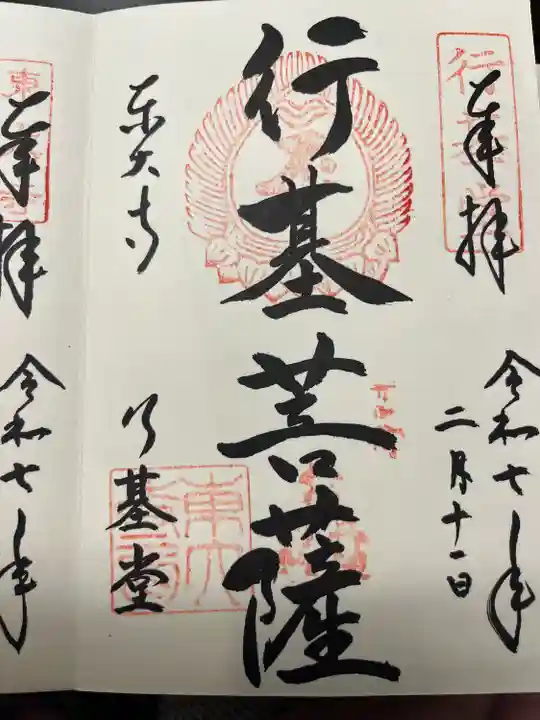 奉拝
令和七年
二月十一日
行基菩薩
東大寺
行基堂
行基堂
東大寺
奉拝
令和七年
東